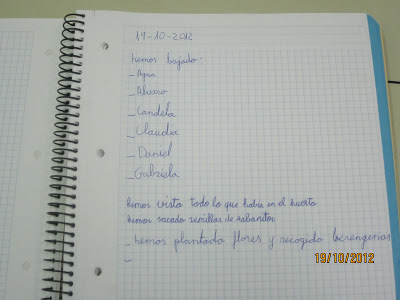 19-10-2012
hemos bajado:
- Agua
- Alvaro
- Candela
- Claudia
- Daniel
- Gabriela
hemos visto todo lo que habia en el huerto
hemos sacado semillas de rabanitos
- hemos plantado flores y recogido berengenas
-
19/10/2012